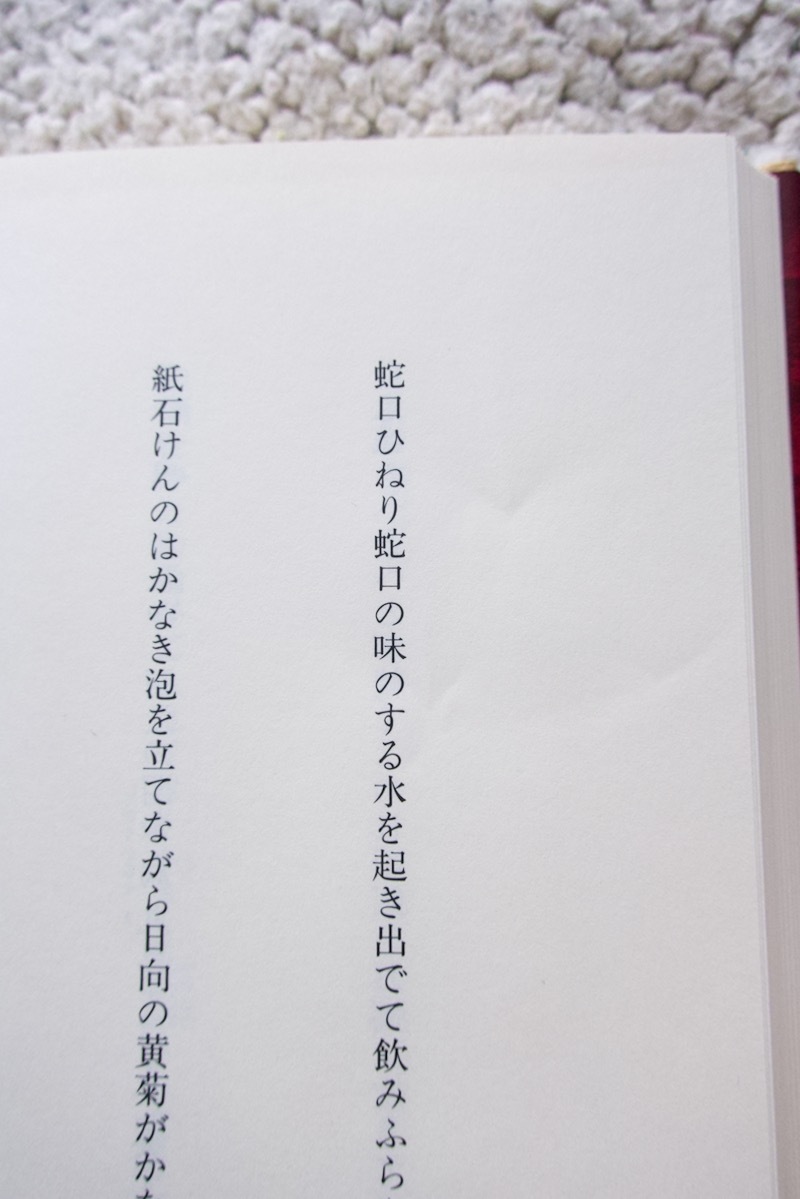 蛇口ひねり蛇口の味のする水を起き出でて飲みふら
紙石けんのはかなき泡を立てながら日向の黄菊がか